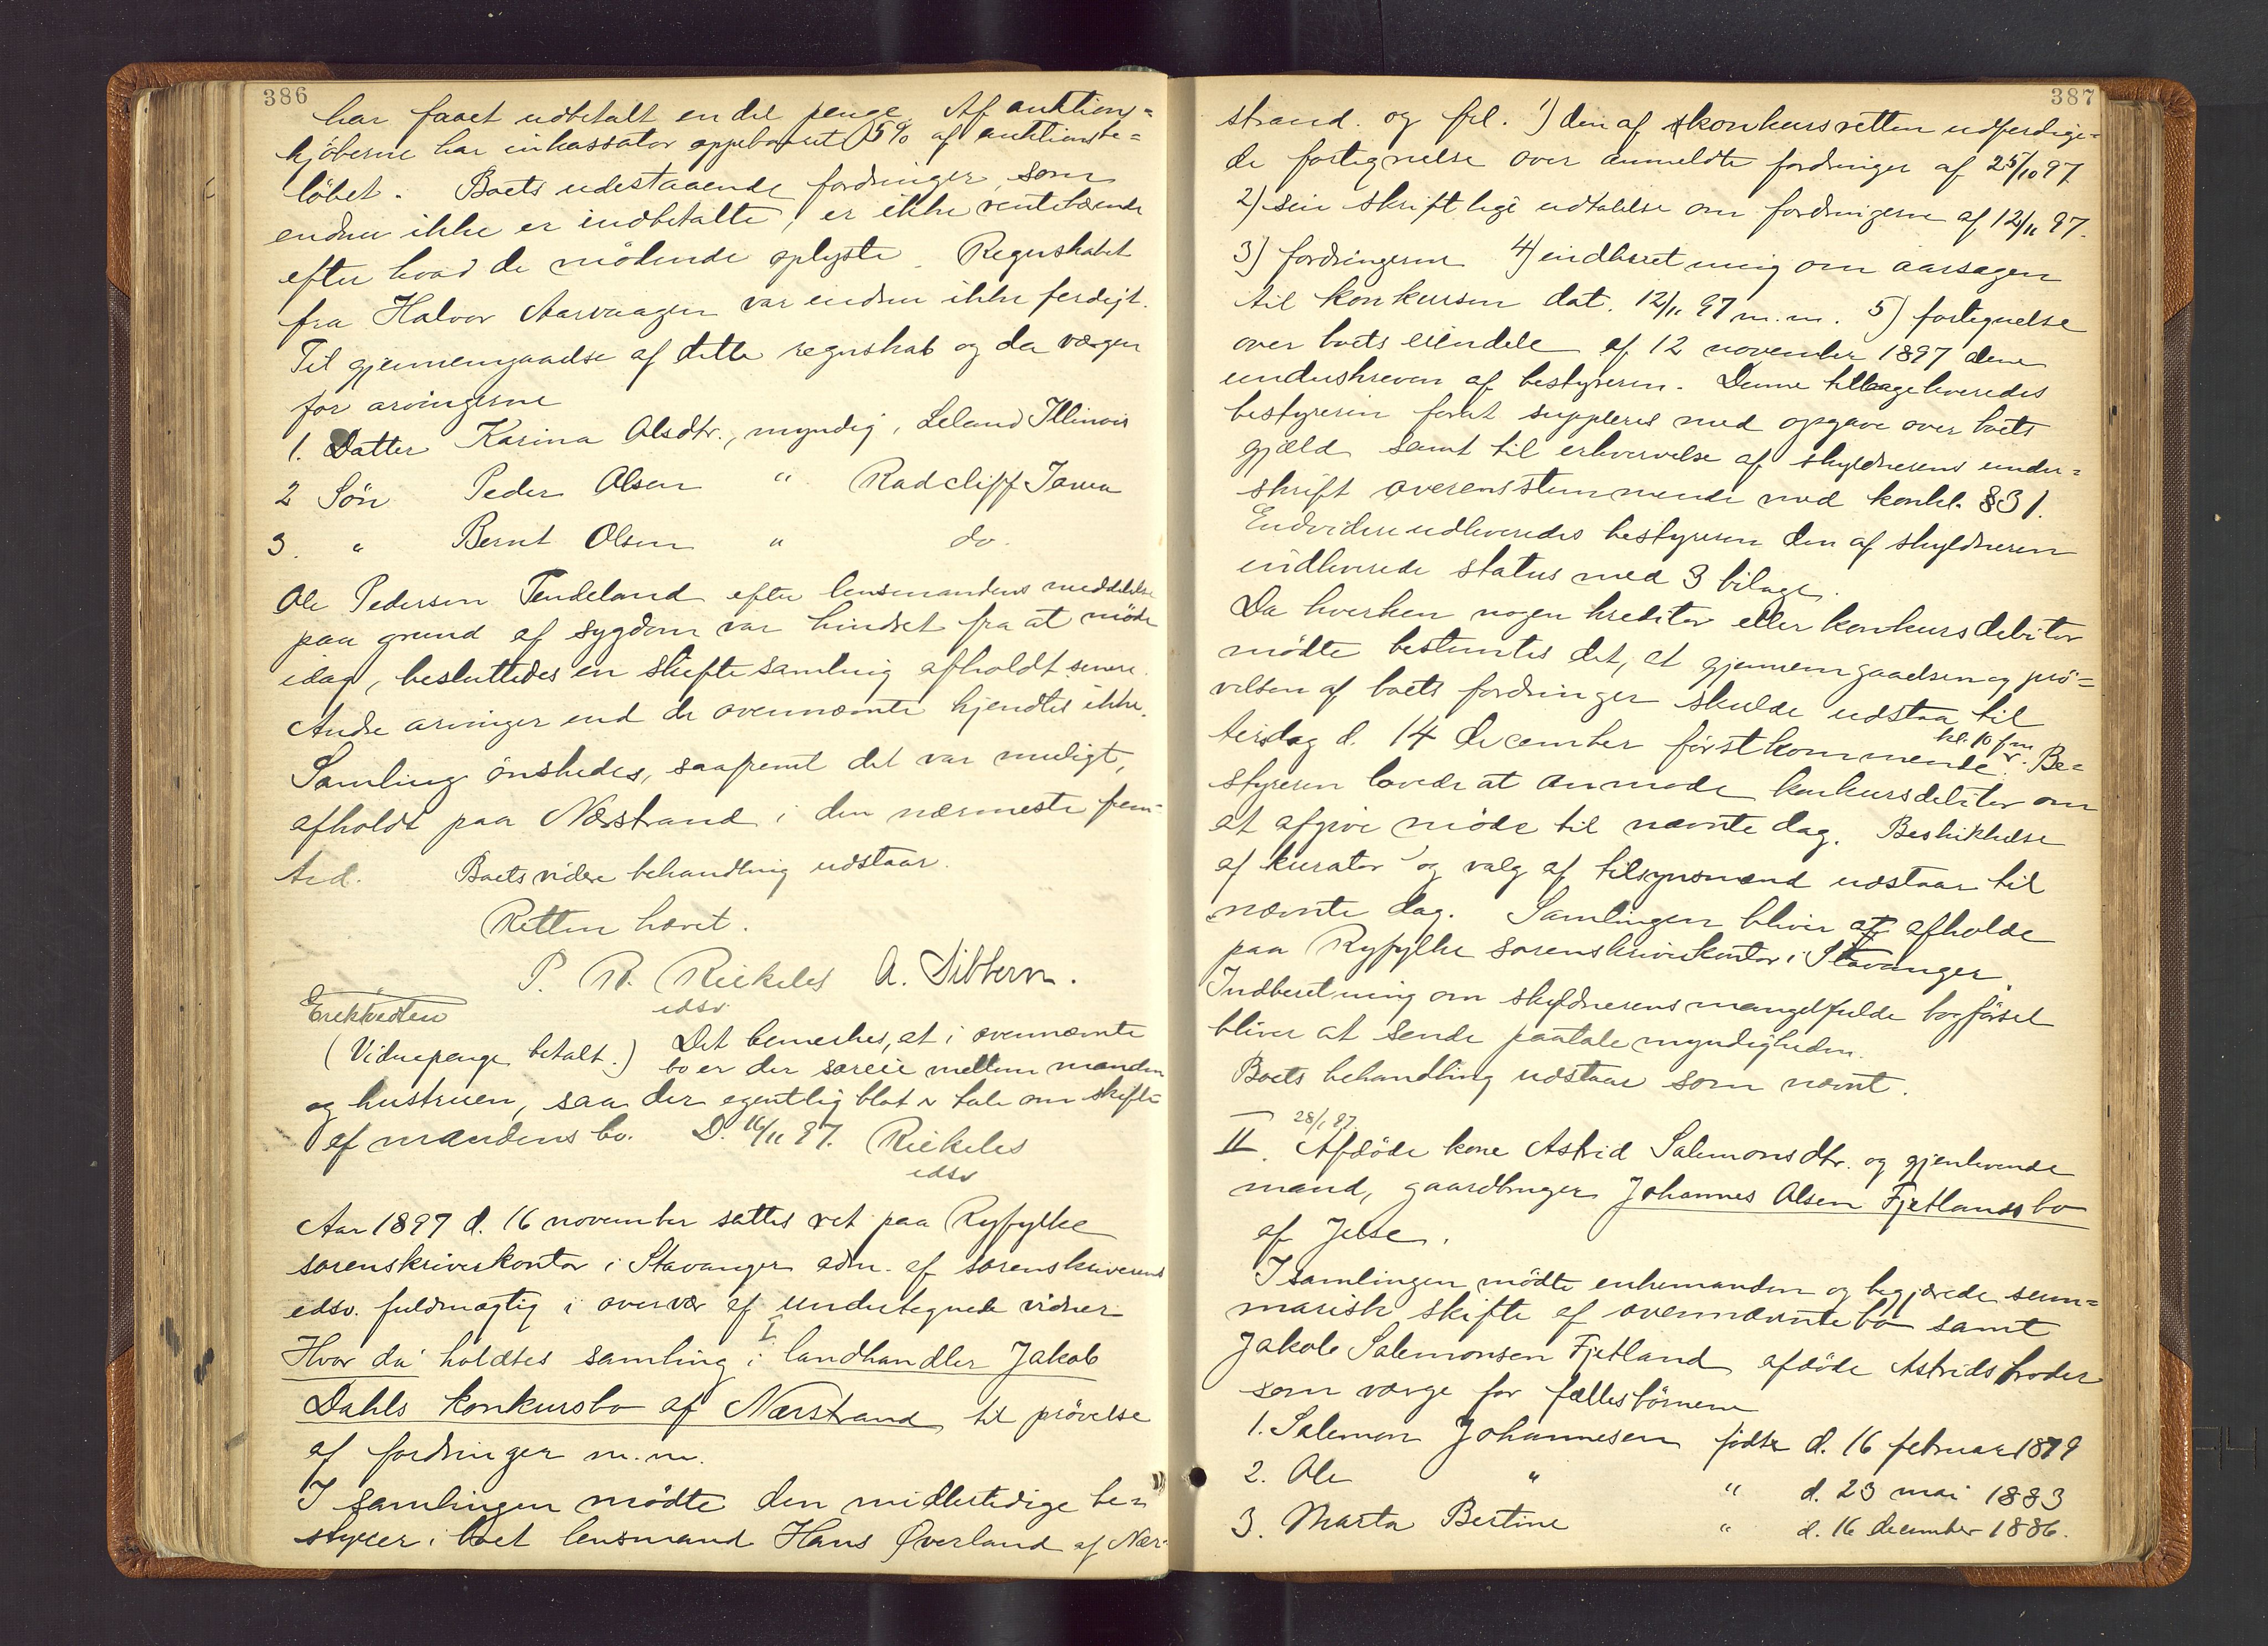 386
har faaet udbetalt en del penge. Af auktions=
kjöberne har inkassator oppebaaret 5% af auktionsbe=
löbet. Boets udestaaende fordringer, som
endnu ikke er indbetalte, er ikke rentebærende
efter hvad de mödende oplyste. Regnskabet
fra Halvor Aarvaagen var endnu ikke ferdigt.
Til gjennemgaaelse af dette regnskab og da værgen
for arvingerne
1. Datter Karina Olsdtr., myndig, Leland Illinois
2 Sön Peder Olsen " Radcliff Iowa
3. " Bernt Olsen " do.
Ole Pedersen Tendeland efter lensmandens meddelelse
paa grund af sygdom var hindret fra at möde
idag, besluttedes en skiftesamling afholdt senere.
Andre arvinger end de ovennæmte kjendtes ikke.
Samling önskedes, saafremt det var muligt,
afholdt paa Nærstrand i den nærmeste frem=
tid. Boets videre behandling udstaar.
Retten hævet.
P. R. Riekeles A. Sibbern.
edsv
Erektvedten
(Vidnepenge betalt.) Det bemerkes, at i ovennæmte
bo er der særeie mellem manden
og hustruen, saa der egentlig blot er tale om skifte
af mandens bo. D. 16/11 97. Riekeles
edsv
Aar 1897 d. 16 november sattes ret paa Ryfylke
sorenskriverkontor i Stavanger adm. af sorenskriverens
edsv. fuldmægtig i overvær af undertegnede vidner
I.
Hvor da holdtes samling i landhandler Jakob
Dahls konkursbo af Nærstrand til prövelse
af fordringer m.m.
I samlingen mödte den midlertidige be=
styrer i boet lensmand Hans Øverland af Nær=
387
strand. og frl. 1) den af konkursretten udferdige=
de fortegnelse over anmeldte fordringer af 25/10 97
2) sin skriftlige udtalelse om fordringerne af 12/11 97.
3) fordringerne 4) indberetning om aarsagen
til konkursen dat. 12/11 97 m.m. 5) fortegnelse
over boets eiendele af 12 november 1897 dene
underskreven af bestyreren. Denne tilbageleveredes
bestyreren forat suppleres med opgave over boets
gjæld samt til erhvervelse af skyldnerens under=
skrift overensstemmende med konkl. §31.
Endvidere udleveredes bestyreren den af skyldneren
indleverede status med 3 bilage.
Da hverken nogen kreditor eller konkursdebitor
mödte bestemtes det, at gjennemgaaelsen og prö=
velsen af boets fordringer skulde udstaa til
kl. 10 fm
tirsdag d. 14 december förstkommende. Be=
styreren lovede at anmode konkursdebitor om
at afgive möde til nævnte dag. Beskikkelse
af kurator og valg af tilsynsmænd udstaar til
nævnte dag. Samlingen bliver at afholde
paa Ryfylke sorenskriverkontor i Stavanger.
Indberetning om skyldnerens mangelfulde bogførsel
bliver at sende paatalemyndigheden.
Boets behandling udstaar som nævnt.
28/1 97
II. Afdöde kone Astrid Salemonsdtr. og gjenlevende
mand, gaardbruger Johannes Olsen Fjetlands bo
af Jelse.
I samlingen mödte enkemanden og begjærede sum=
marisk skifte af ovennævnte bo samt
Jakob Salemonsen Fjetland afdöde Astrids broder
som værge for fællesbörnene
1. Salemon Johannesen födte d. 16 februar 1879
2. Ole " " d. 23 mai 1883
3. Marta Bertine " d. 16 december 1886.